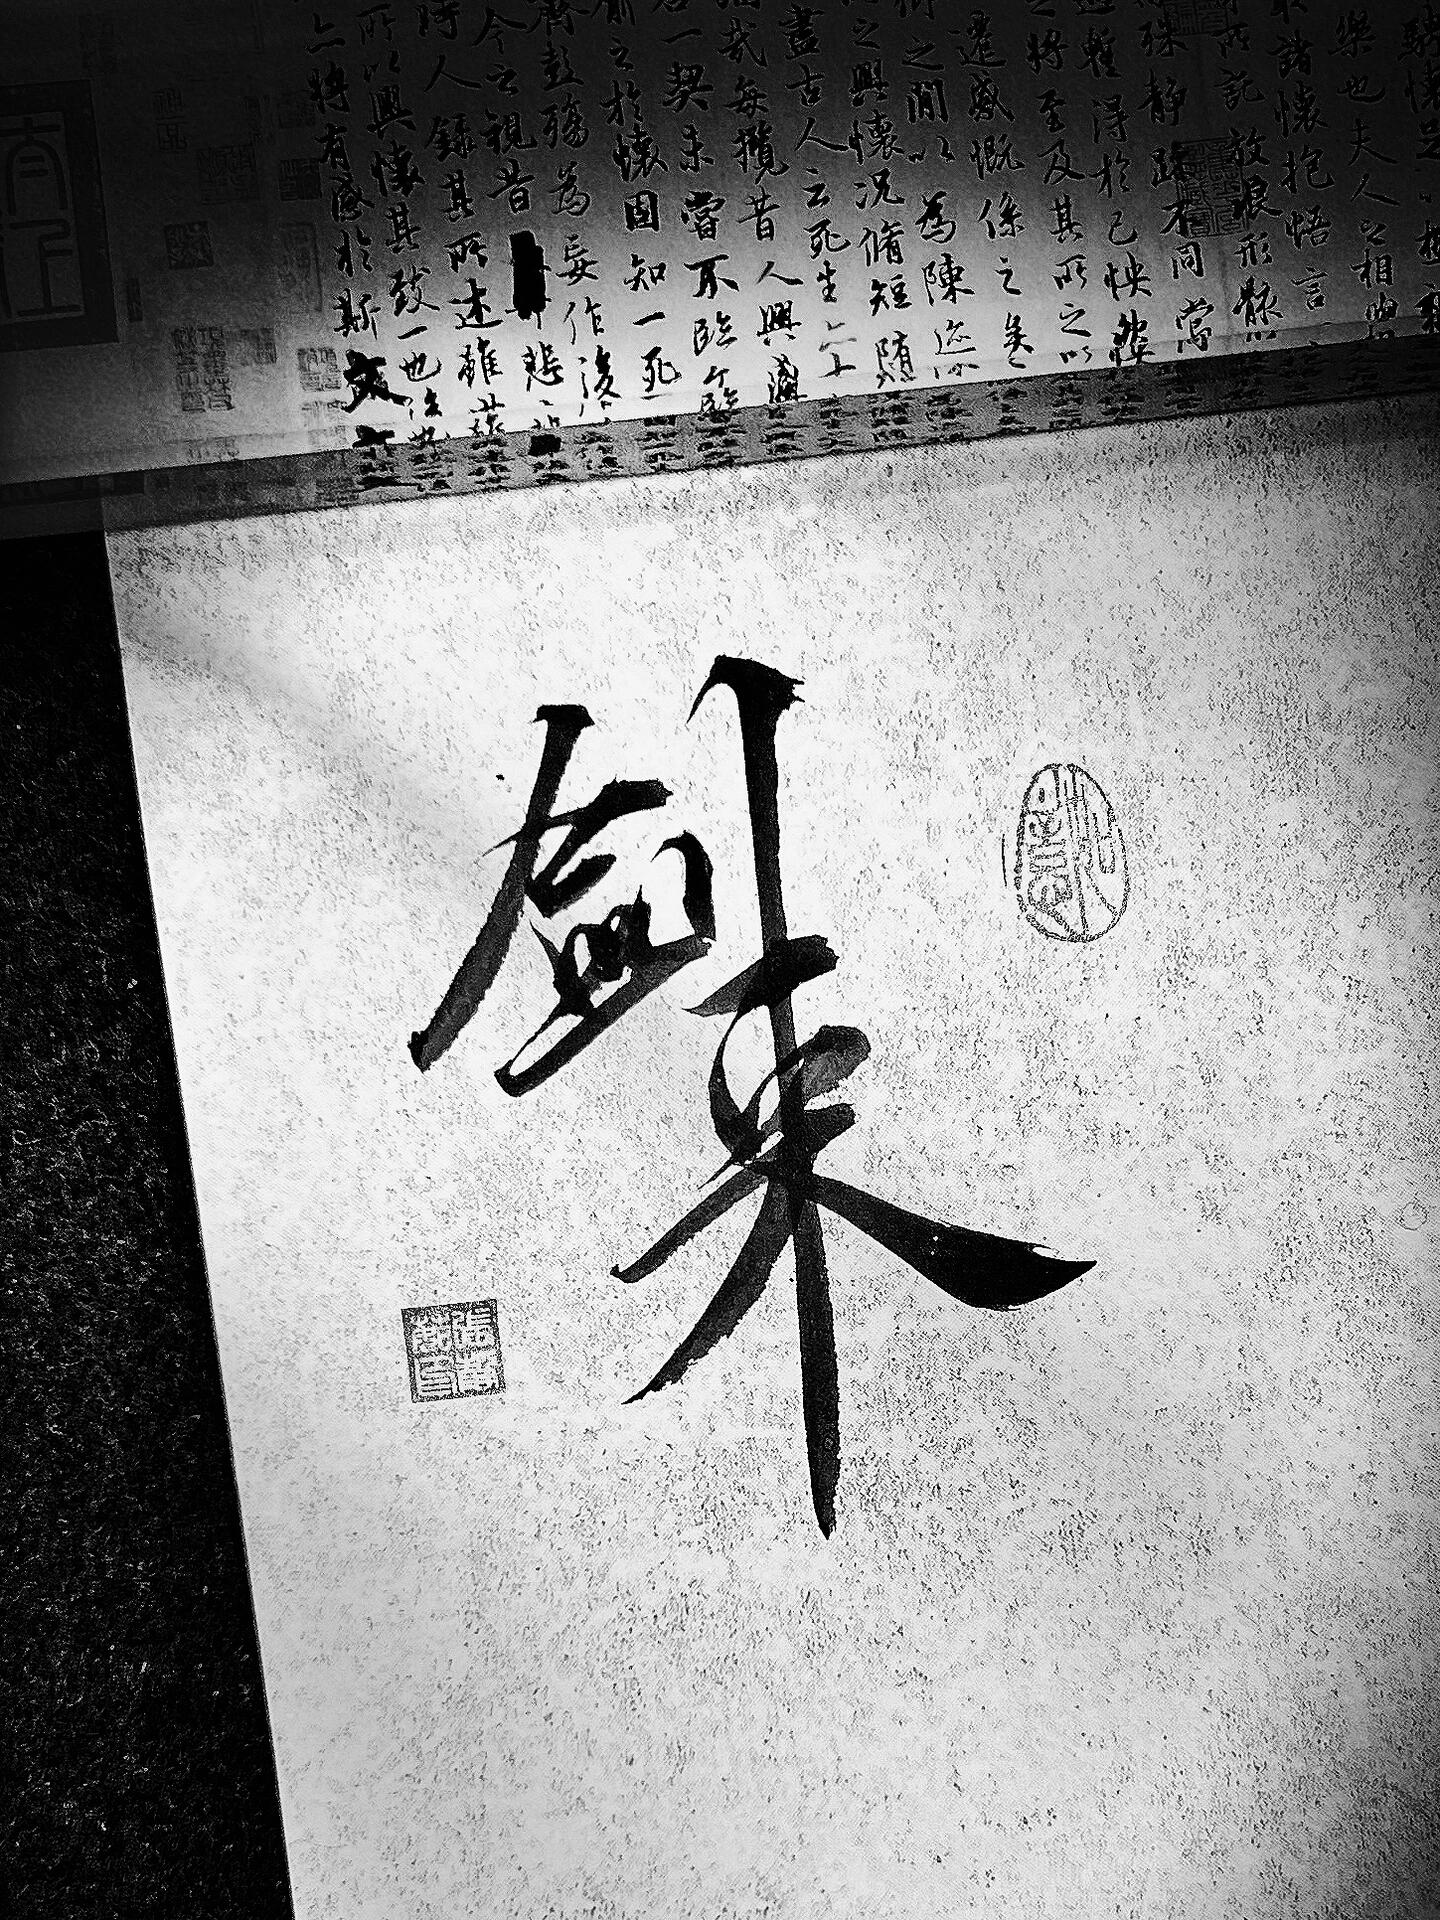 騁懷足以極視
樂也夫人之相與
取諸懷抱悟言
所託放浪形骸
殊靜躁不同當
蹔得於己怏然
之將至及其所之
遷感慨係之矣
之閒以為陳迹
之興懷況脩短隨
盡古人云死生亦大
哉每攬昔人興感
一契未嘗不臨
之於懷固知一死
齊彭殤為妄作後
今之視昔 悲
時人錄其所述雖
所以興懷其致一也後
亦將有感於斯文
劍來